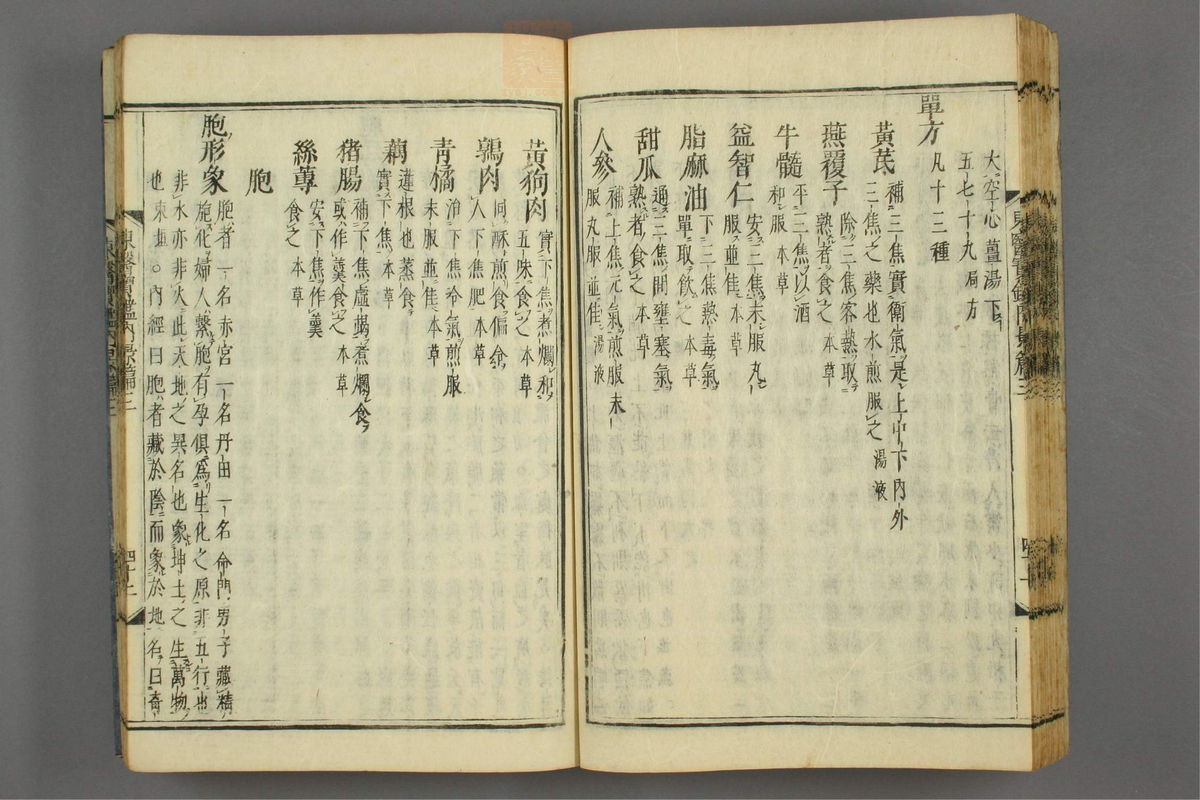 大空心薑湯下
五七十丸局方
單方
凡十三種
黃芪
補三焦實衛氣是上中下內外
三焦之藥也水煎服之湯液
燕覆子
除三焦客熱取
熟者食之本草
牛髓
平三焦以酒
和服本草
益智仁
安三焦末服丸
服並佳本草
脂麻油
下三焦熱毒氣
單取飲之本草
甜瓜
通三焦間壅塞氣
熟者食之本草
人參
補上焦元氣煎服末
服丸服並佳湯液
黃狗肉
實下焦煮爛和
五味食之本草
鶉肉
同酥煎食偏令
人下焦肥本草
青橘
治下焦冷氣煎服
末服並佳本草
藕
蓮根也蒸食
實下焦本草
猪腸
補下焦虛竭煮爛食
或作羹食之本草
絲蓴
安下焦作羹
食之本草
胞
胞形象
胞者一名赤宮一名丹田一名命門男子藏精
施化婦人繫胞有孕俱爲生化之原非五行也
非水亦非火此天地之異名也象坤土之生萬物
也東垣○內經曰胞者藏於陰而象於地名曰奇
東醫寶鑑內景篇三
四十二